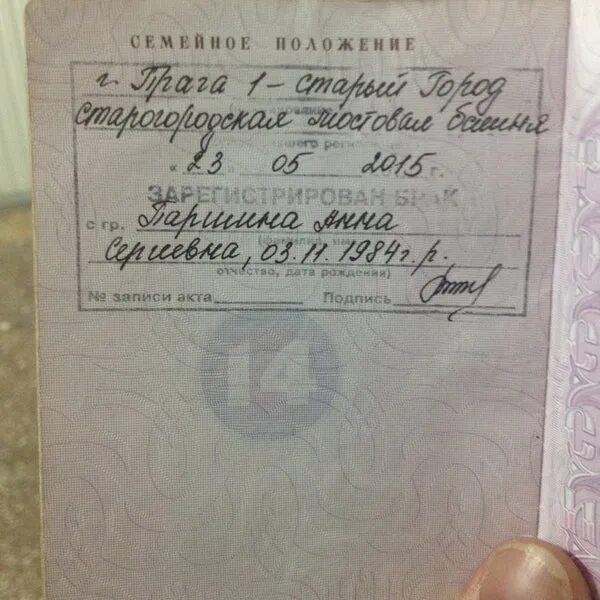 СЕМЕЙНОЕ ПОЛОЖЕНИЕ
г. Прага 1 - Старый Город
Старогородская мостовая башня
"23" 05 2015 г.
ЗАРЕГИСТРИРОВАН БРАК
с гр. Паршина Анна
Сергеевна, 03.11.1984 г.р.
отчество, дата рождения)
№ записи акта Подпись
14